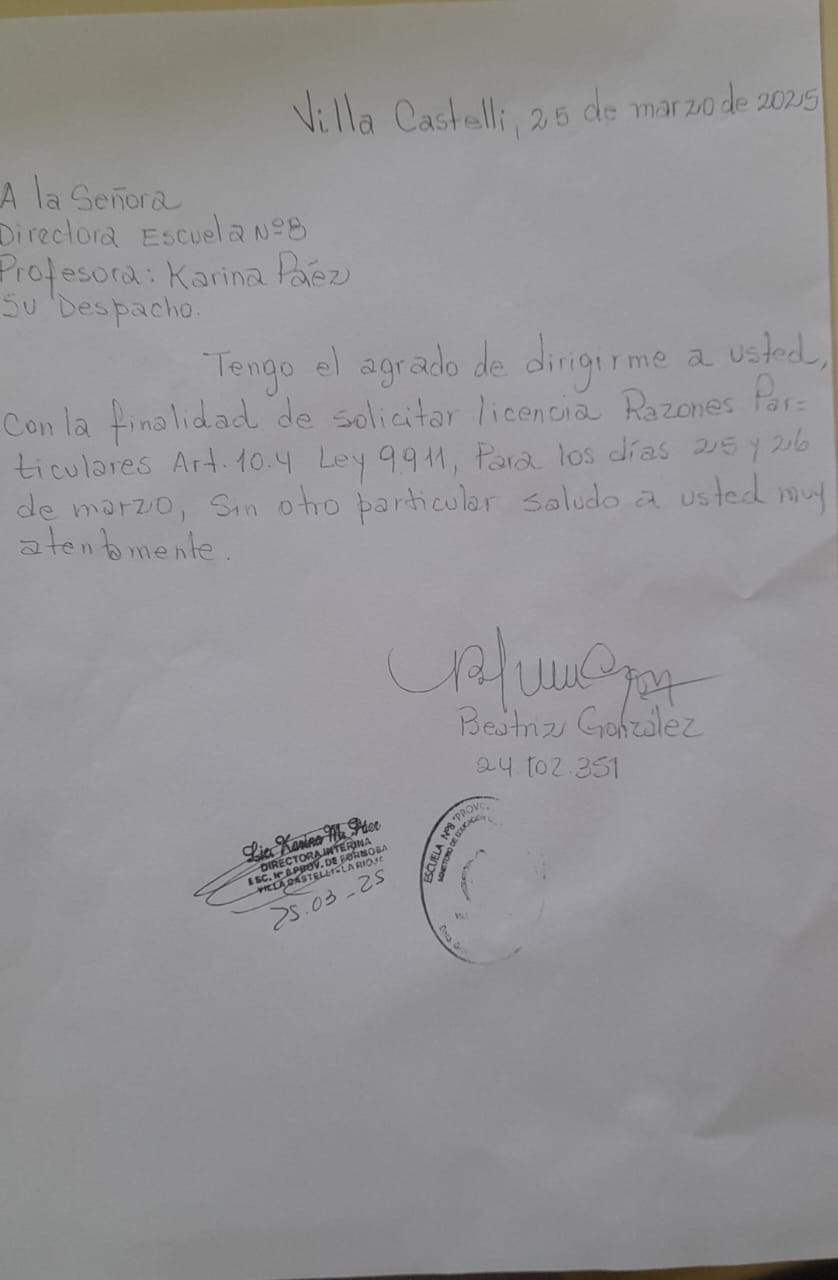 Villa Castelli, 25 de marzo de 2025
A la Señora
Directora Escuela Nº8
Profesora: Karina Páez
Su Despacho.
Tengo el agrado de dirigirme a usted,
con la finalidad de solicitar licencia Razones Par=
ticulares Art. 10.4 Ley 9.911, Para los días 25 y 26
de marzo, Sin otro particular saludo a usted muy
atentamente.
Beatriz González
24.102.351
Lic. Karina M. Páez
DIRECTORA INTERINA
ESC. Nº 8 PROV. DE FORMOSA
VILLA CASTELLI - LA RIOJA
25.03-25
ESCUELA Nº8 "PROV.
MINISTERIO DE EDUCACION